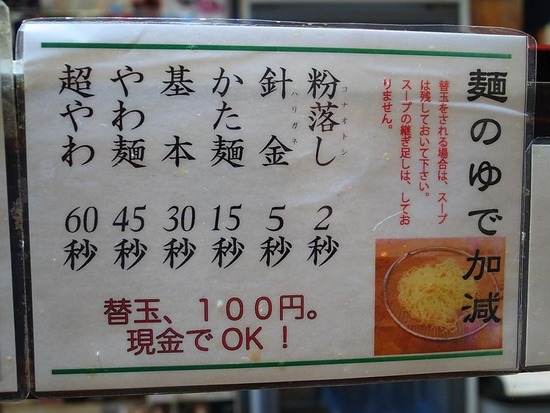 麺のゆで加減
替玉をされる場合は、スープ
は残しておいて下さい。
スープの継ぎ足しは、してお
りません。
粉落し 2秒
コナオトシ
針金 5秒
ハリガネ
かた麺 15秒
基本 30秒
やわ麺 45秒
超やわ 60秒
替玉、１００円。
現金でOK！